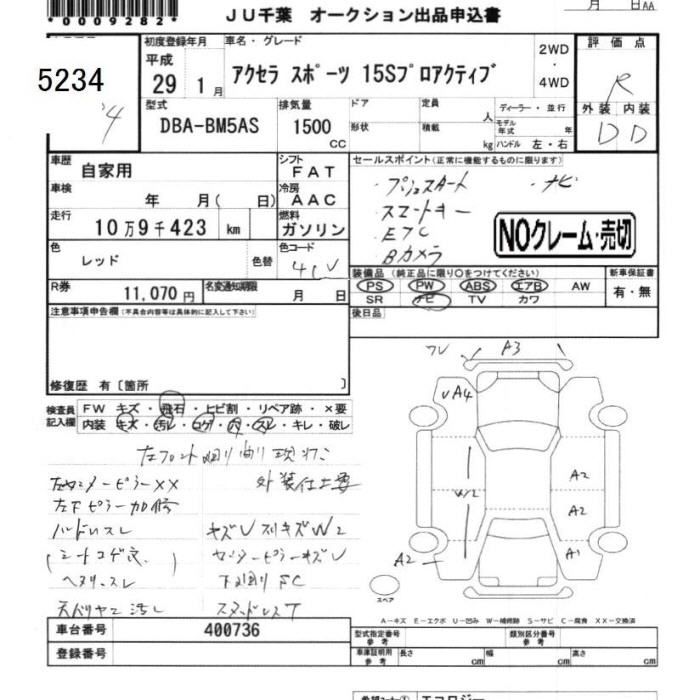 *0009282*
JU千葉 オークション出品申込書
月 日AA
5234
'4
初度登録年月
平成
29 1月
車名・グレード
アクセラ スポーツ 15Sプロアクティブ
2WD
・
4WD
評価点
R
外装 内装
D D
型式
DBA-BM5AS
排気量
1500
CC
ドア
形状
定員
人
積載
kg
ディーラー・並行
モデル年式 年
ハンドル 左・右
車歴
自家用
シフト
FAT
車検
年 月( 日)
冷房
AAC
走行
10万9千423 km
燃料
ガソリン
色
レッド
色替
色コード
41V
R券
11,070円
名変通知期限
月 日
セールスポイント(正常に機能するものに限ります)
・プッシュスタート ・ナビ
・スマートキー
・ETC
・Bカメラ
NOクレーム・売切
装備品(純正品に限り○をつけてください)
PS PW ABS エアB AW
SR ナビ TV カワ
新車保証書
有・無
後日品
注意事項申告欄(不具合内容等は具体的に記入して下さい)
修復歴 有〔箇所 〕
検査員
記入欄
FW キズ・飛石・ヒビ割・リペア跡・×要
内装 キズ・汚レ・コゲ・穴・スレ・キレ・破レ
外装仕上要
左センターピラーXX
ハンドルスレ
キズU スリキズW2
センターピラーキズU
下廻りFC
フレ
A3
UA4
W2
A2
A2
A1
A2
スペア
A－キズ E－エクボ U－凹み W－補修跡 S－サビ C－腐食 XX－交換済
車台番号
400736
登録番号
型式指定番号
参考
類別区分番号
参考
車庫証明用
参考
長さ cm
幅 cm
高さ cm
エコロジー